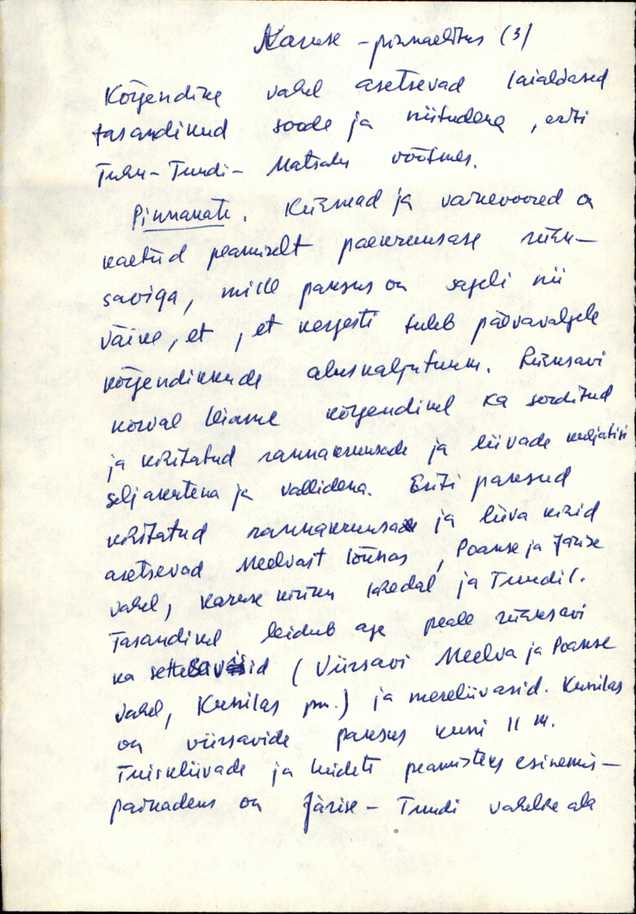 Karuse - pinnaehitus (3)
Kõrgendike vahel asetsevad laialdased
tasandikud soode ja niitudena, eriti
Tuhu-Tuudi- Matsalu vöötmes.
Pinnakate. Künkad ja väikevoored on
kaetud peamiselt paekruusase rähk-
saviga, mille paksus on sageli nii
väike, et, et kergesti tuleb päevavalgele
kõrgendikkude aluskaljutuum. Rähksavi
kõrval leiame kõrgendikel ka sorditud
ja kihitatud rannakruusade ja liivade
seljakutena ja vallidena. Eriti paksud
kihitatud rannakruusa ja liiva kihid
asetsevad Meelvast lõunas, Poanse ja Järise
vahel, Karuse kiriku lähedal ja Tuudil.
Tasandikel leidub aga peale rähksavi
ka settesavisid (Viirsavi Meelva ja Poanse
vahel, Kunilas pm.) ja mereliivasid. Kunilas
on viirsavide paksus kuni 11 m.
Tuiskliivade ja luidete peamisteks esinemis-
paikadeks on Järise - Tuudi vaheline ala